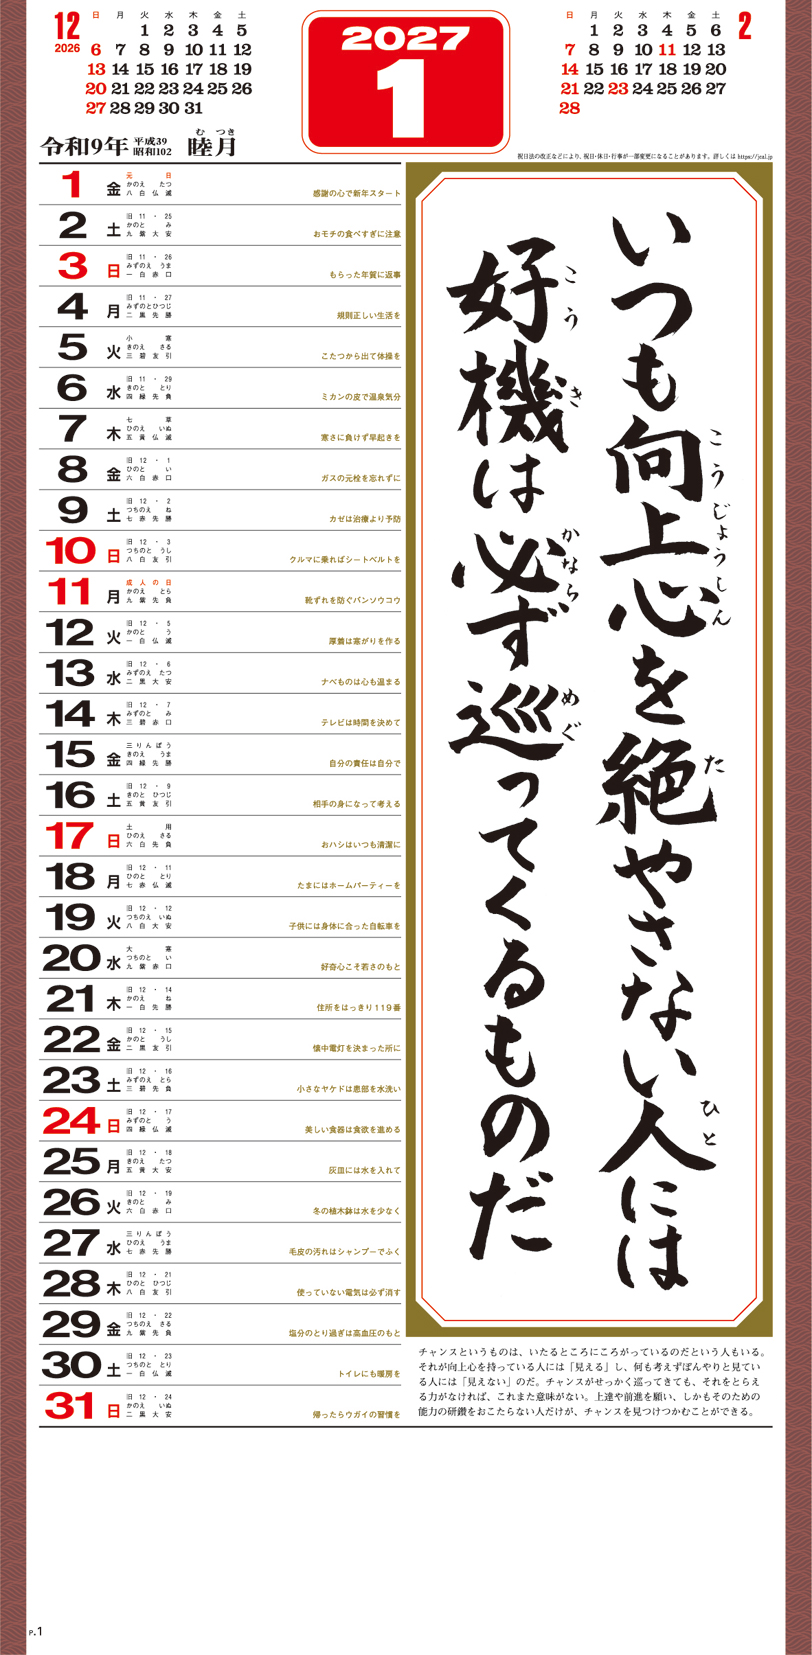 12
2026
日 月 火 水 木 金 土
1 2 3 4 5
6 7 8 9 10 11 12
13 14 15 16 17 18 19
20 21 22 23 24 25 26
27 28 29 30 31
2027
1
2
日 月 火 水 木 金 土
1 2 3 4 5 6
7 8 9 10 11 12 13
14 15 16 17 18 19 20
21 22 23 24 25 26 27
28
令和9年 平成39 昭和102 睦月 むつき
祝日法の改正などにより、祝日・休日・行事が一部変更になることがあります。詳しくは https://jcal.jp
1 金 元日 かのえ たつ 八白仏滅 感謝の心で新年スタート
2 土 旧11・25 かのと み 九紫大安 おモチの食べすぎに注意
3 日 旧11・26 みずのえ うま 一白赤口 もらった年賀に返事
4 月 旧11・27 みずのと ひつじ 二黒先勝 規則正しい生活を
5 火 小寒 きのえ さる 三碧友引 こたつから出て体操を
6 水 旧11・29 きのと とり 四緑先負 ミカンの皮で温泉気分
7 木 七草 ひのえ いぬ 五黄仏滅 寒さに負けず早起きを
8 金 旧12・1 ひのと い 六白赤口 ガスの元栓を忘れずに
9 土 旧12・2 つちのえ ね 七赤先勝 カゼは治療より予防
10 日 旧12・3 つちのと うし 八白友引 クルマに乗ればシートベルトを
11 月 成人の日 かのえ とら 九紫先負 靴ずれを防ぐバンソウコウ
12 火 旧12・5 かのと う 一白仏滅 厚着は寒がりを作る
13 水 旧12・6 みずのえ たつ 二黒大安 ナベものは心も温まる
14 木 旧12・7 みずのと み 三碧赤口 テレビは時間を決めて
15 金 三りんぼう きのえ うま 四緑先勝 自分の責任は自分で
16 土 旧12・9 きのと ひつじ 五黄友引 相手の身になって考える
17 日 土用 ひのえ さる 六白先負 おハシはいつも清潔に
18 月 旧12・11 ひのと とり 七赤仏滅 たまにはホームパーティーを
19 火 旧12・12 つちのえ いぬ 八白大安 子供には身体に合った自転車を
20 水 大寒 つちのと い 九紫赤口 好奇心こそ若さのもと
21 木 旧12・14 かのえ ね 一白先勝 住所をはっきり119番
22 金 旧12・15 かのと うし 二黒友引 懐中電灯を決まった所に
23 土 旧12・16 みずのえ とら 三碧先負 小さなヤケドは患部を水洗い
24 日 旧12・17 みずのと う 四緑仏滅 美しい食器は食欲を進める
25 月 旧12・18 きのえ たつ 五黄大安 灰皿には水を入れて
26 火 旧12・19 きのと み 六白赤口 冬の植木鉢は水を少なく
27 水 三りんぼう ひのえ うま 七赤先勝 毛皮の汚れはシャンプーでふく
28 木 旧12・21 ひのと ひつじ 八白友引 使っていない電気は必ず消す
29 金 旧12・22 つちのえ さる 九紫先負 塩分のとり過ぎは高血圧のもと
30 土 旧12・23 つちのと とり 一白仏滅 トイレにも暖房を
31 日 旧12・24 かのえ いぬ 二黒大安 帰ったらウガイの習慣を
いつも向上心を絶やさない人には
こうじょうしん た ひと
好機は必ず巡ってくるものだ
こうき かなら めぐ
チャンスというものは、いたるところにころがっているのだという人もいる。
それが向上心を持っている人には「見える」し、何も考えずぼんやりと見てい
る人には「見えない」のだ。チャンスがせっかく巡ってきても、それをとらえ
る力がなければ、これまた意味がない。上達や前進を願い、しかもそのための
能力の研鑽をおこたらない人だけが、チャンスを見つけつかむことができる。
P.1